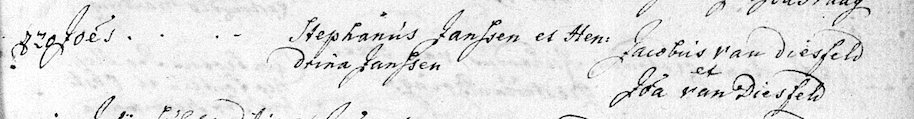 29 Joes . . . . Stephanus Janssen et Hen: Jacobus van Diesfeld
drina Janssen et
Joa van Diesfeld